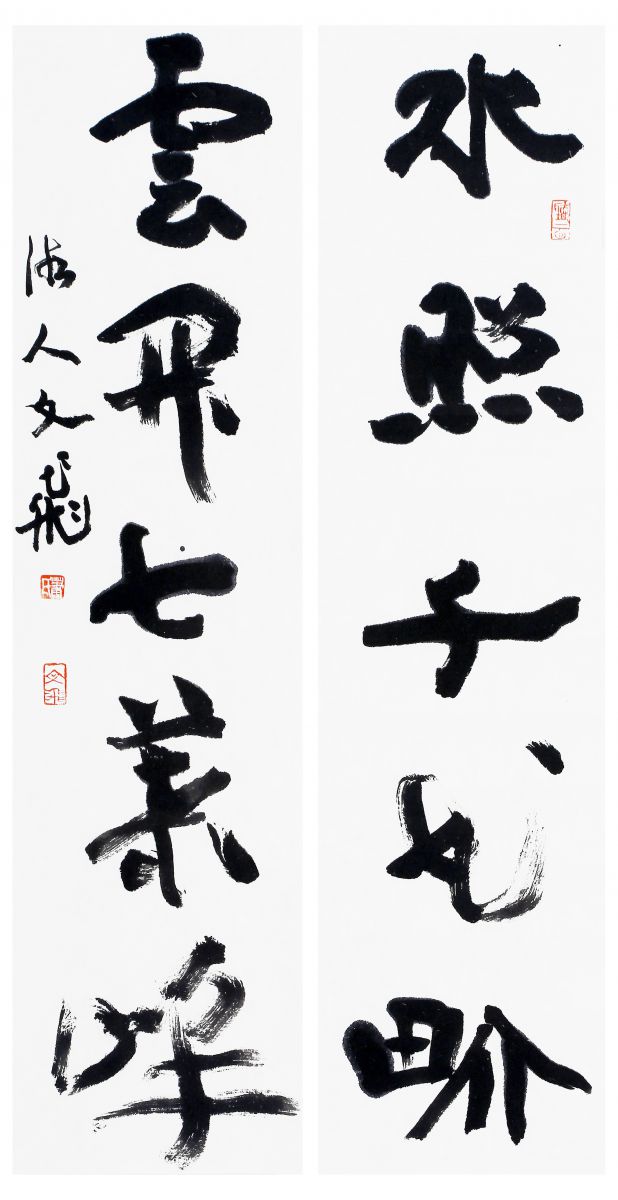 水照千花畍
雲開七葉峰
人文飛